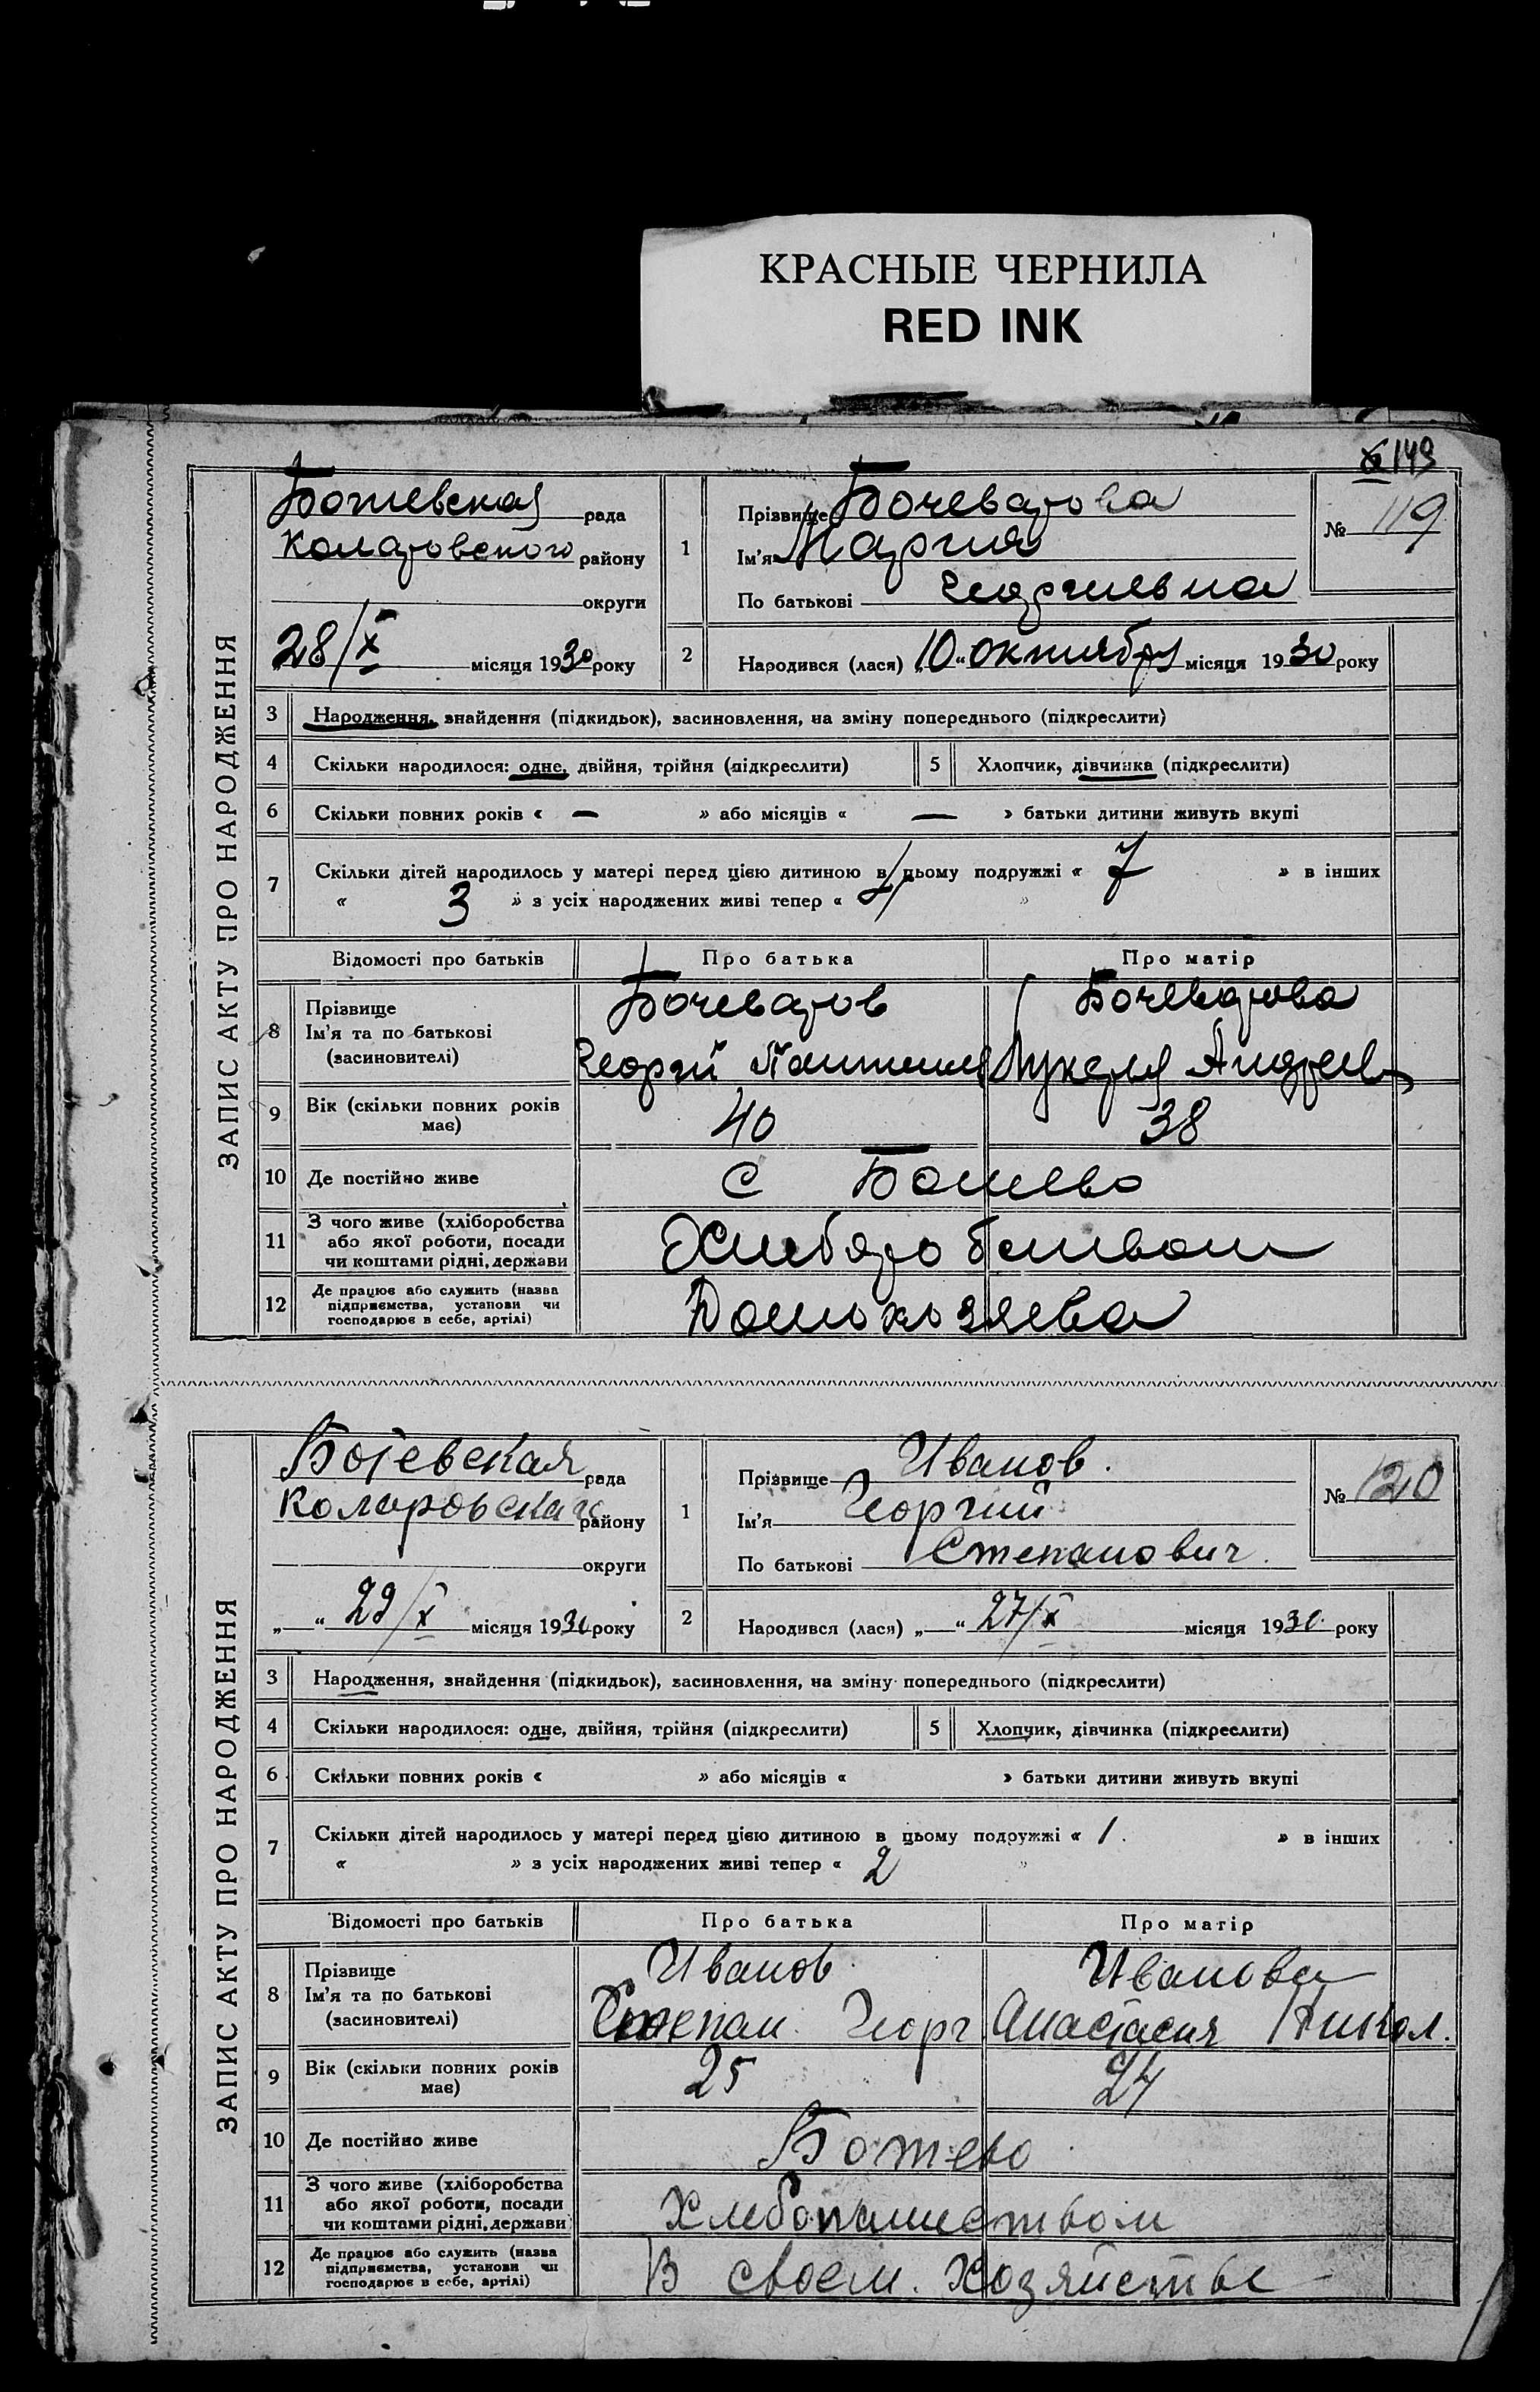 КРАСНЫЕ ЧЕРНИЛА
RED INK
149
ЗАПИС АКТУ ПРО НАРОДЖЕННЯ
Ботевская рада
Коларовского району
округи
28/X місяця 1930 року
1
Прізвище Бочеварова
Ім'я Мария
По батькові Георгиевна
№ 119
2
Народився (лася) „10“ октября місяця 1930 року
3 Народження, знайдення (підкидьок), засиновлення, на зміну попереднього (підкреслити)
4 Скільки народилося: одне, двійня, трійня (підкреслити)
5 Хлопчик, дівчинка (підкреслити)
6 Скільки повних років « — » або місяців « — » батьки дитини живуть вкупі
7 Скільки дітей народилось у матері перед цією дитиною в цьому подружжі « 7 » в інших
« 3 » з усіх народжених живі тепер « 4 »
Відомості про батьків Про батька Про матір
8 Прізвище Бочеваров Бочеварова
Ім'я та по батькові
(засиновителі) Георгий Лукерья Андреев
9 Вік (скільки повних років має) 40 38
10 Де постійно живе С Ботево
11 З чого живе (хліборобства
або якої роботи, посади
чи коштами рідні, держави
12 Де працює або служить (назва
підприємства, установи чи
господарює в себе, артілі)
ЗАПИС АКТУ ПРО НАРОДЖЕННЯ
Ботевская рада
Коларовскаго району
округи
„—“ 29/X місяця 1930 року
1
Прізвище Иванов.
Ім'я Георгий
По батькові Степанович.
№ 120
2
Народився (лася) „—“ 27/X місяця 1930 року
3 Народження, знайдення (підкидьок), засиновлення, на зміну попереднього (підкреслити)
4 Скільки народилося: одне, двійня, трійня (підкреслити)
5 Хлопчик, дівчинка (підкреслити)
6 Скільки повних років « » або місяців « » батьки дитини живуть вкупі
7 Скільки дітей народилось у матері перед цією дитиною в цьому подружжі « 1. » в інших
« » з усіх народжених живі тепер « 2 »
Відомості про батьків Про батька Про матір
8 Прізвище Иванов Иванова
Ім'я та по батькові
(засиновителі) Степан Георг Анастасия Никол.
9 Вік (скільки повних років має) 25 24
10 Де постійно живе Ботево
11 З чого живе (хліборобства
або якої роботи, посади
чи коштами рідні, держави Хлебопашеством
12 Де працює або служить (назва
підприємства, установи чи
господарює в себе, артілі) В своем. Хозяйстве